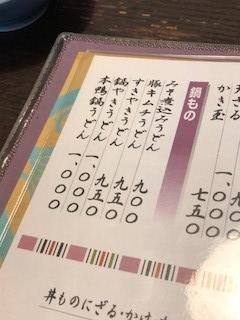 かき玉 七五〇
鍋もの
みそ煮込みうどん
豚キムチうどん 九〇〇
すきやきうどん 九五〇
鍋やきうどん 一、〇〇〇
本鴨鍋うどん 一、〇〇〇
丼ものにざる・かけ